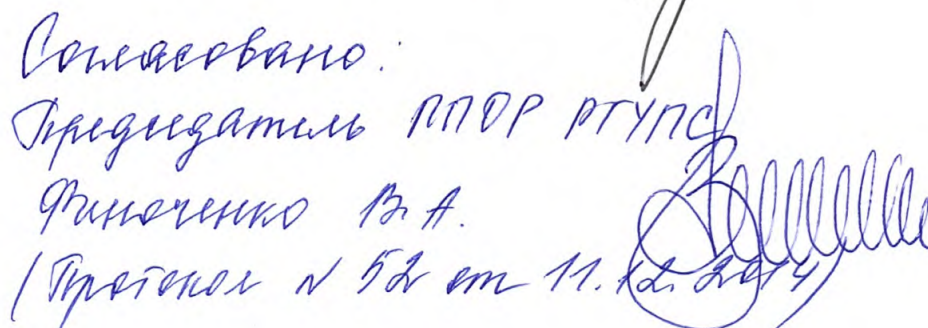 Согласовано:
Председатель ППОР РГУПС
Финоченко В.А.
(Протокол N 52 от 11.12.2014)